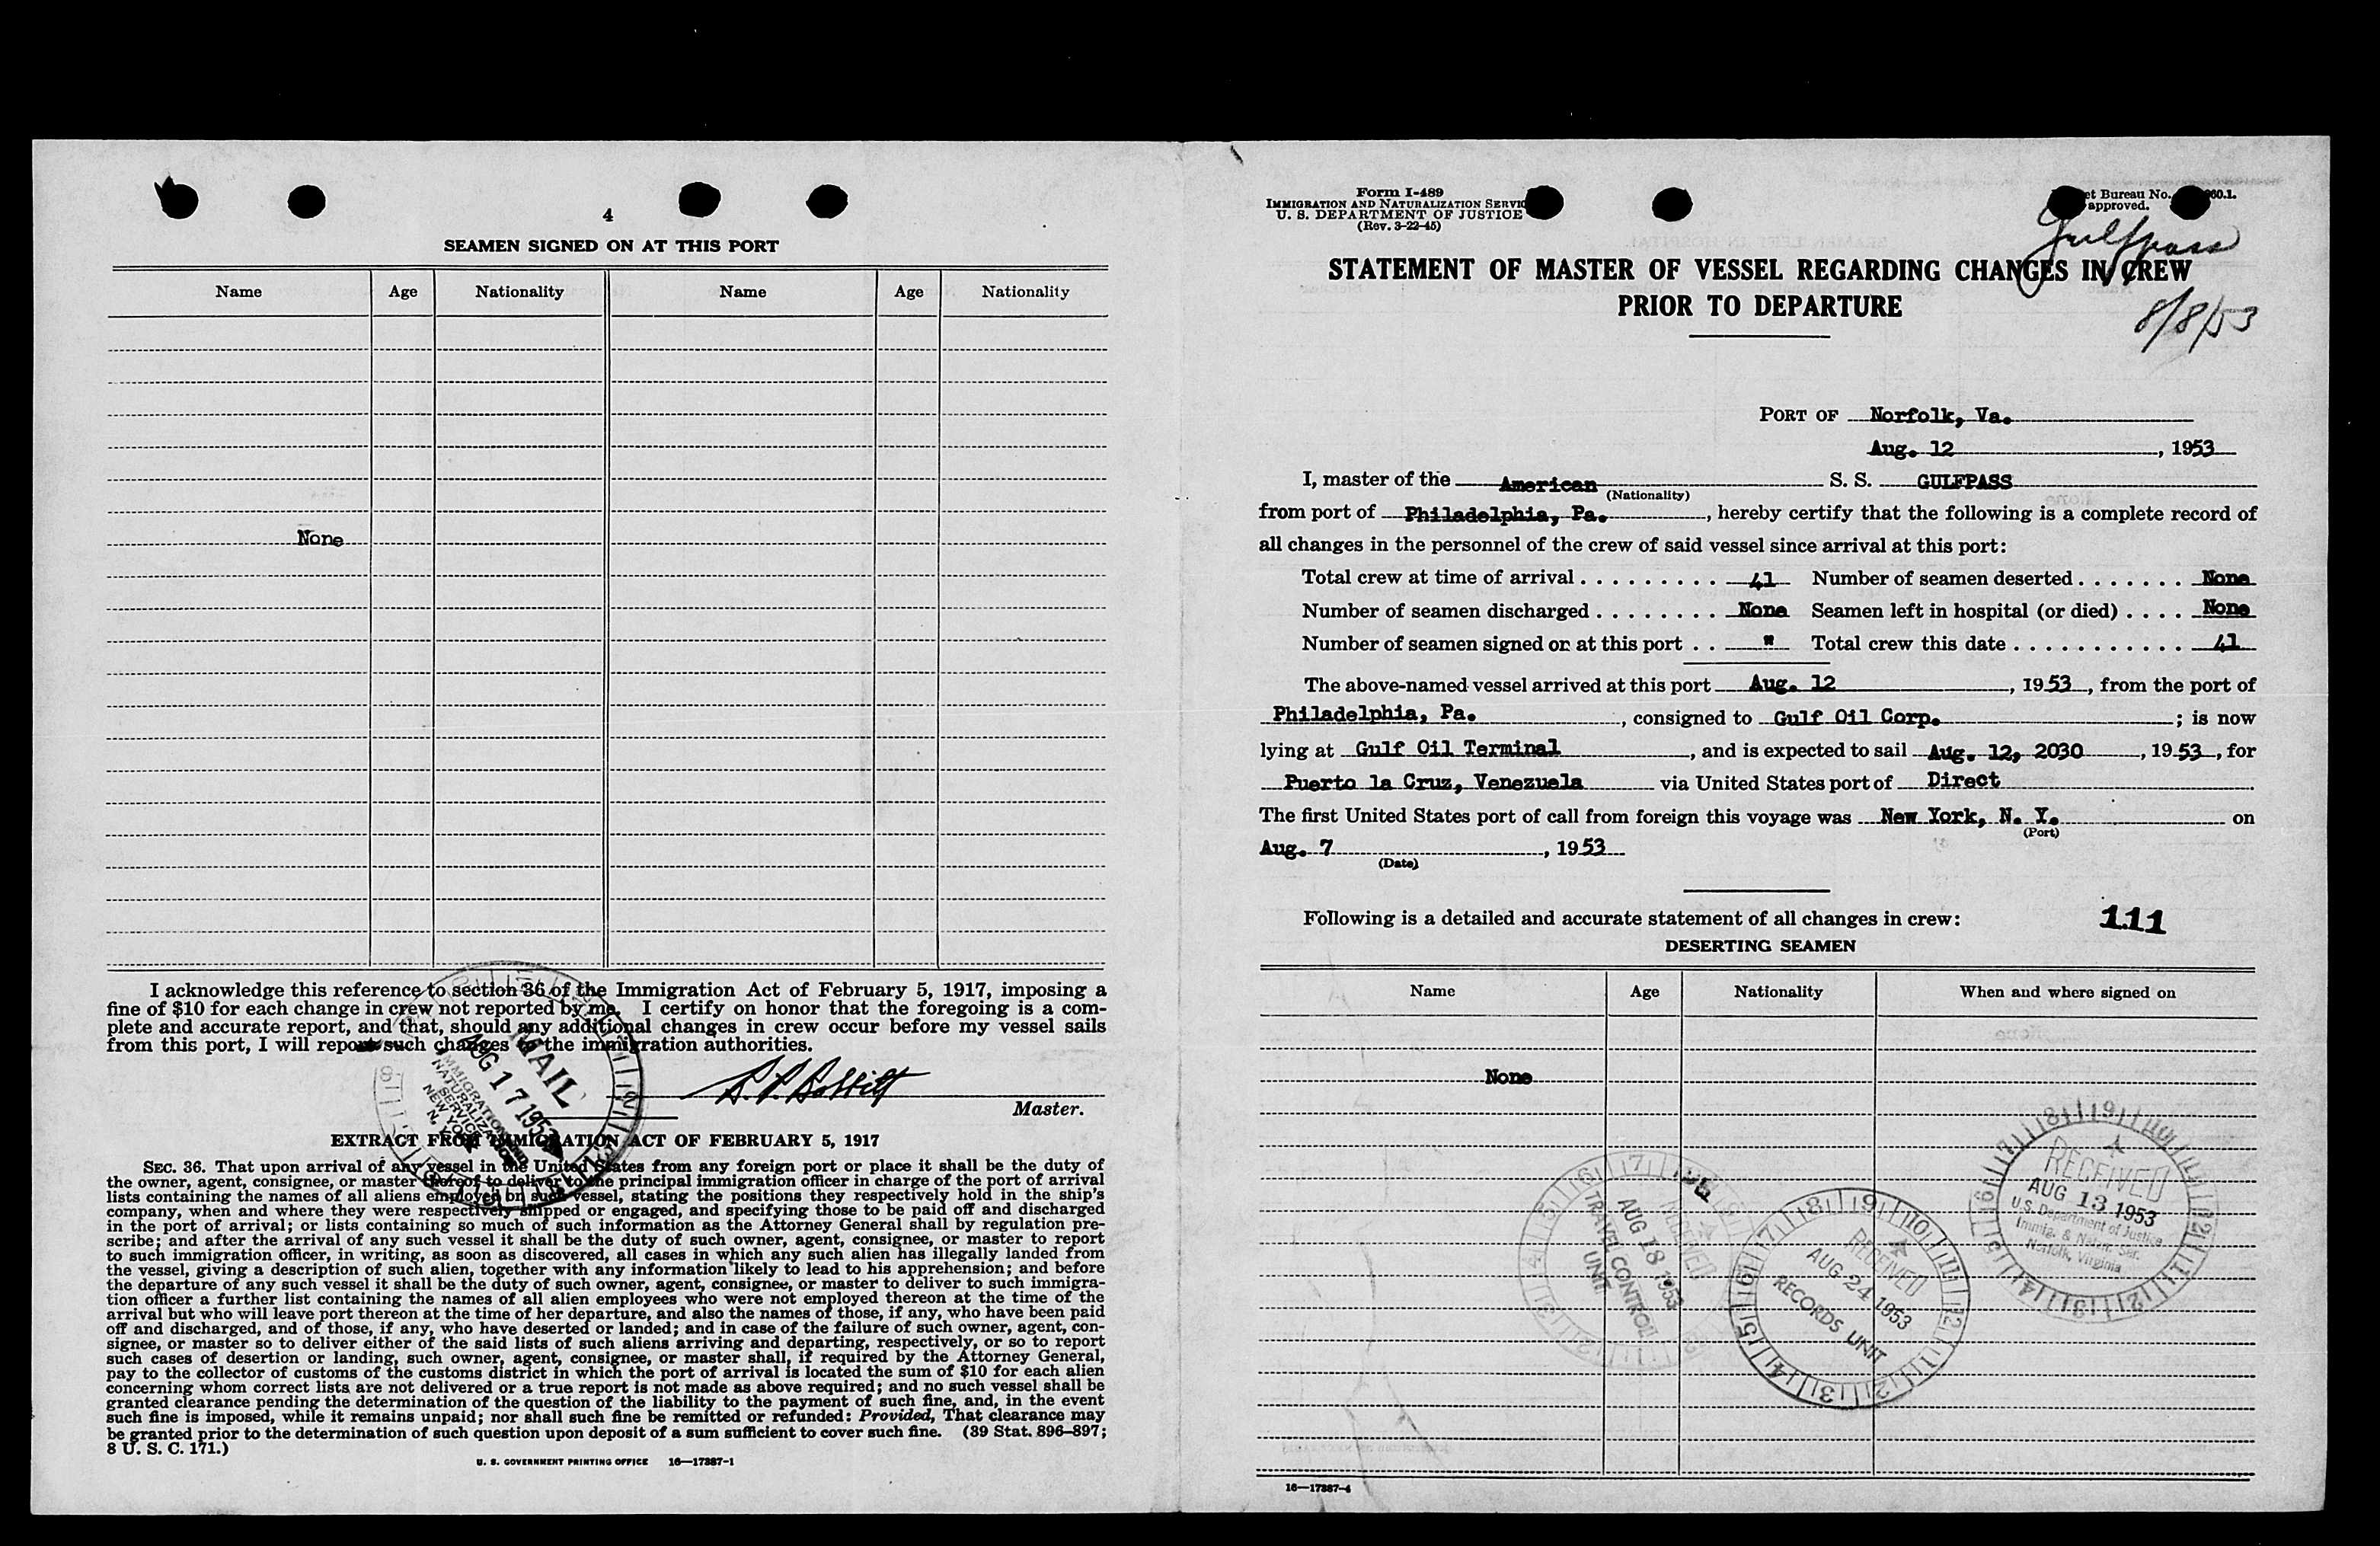 4
SEAMEN SIGNED ON AT THIS PORT
Name Age Nationality Name Age Nationality
None
I acknowledge this reference to section 36 of the Immigration Act of February 5, 1917, imposing a
fine of $10 for each change in crew not reported by me. I certify on honor that the foregoing is a com-
plete and accurate report, and that, should any additional changes in crew occur before my vessel sails
from this port, I will report such changes to the immigration authorities.
MAIL
AUG 17 1953
IMMIGRATION AND
NATURALIZATION
SERVICE
NEW YORK
N. Y.
Master.
EXTRACT FROM IMMIGRATION ACT OF FEBRUARY 5, 1917
SEC. 36. That upon arrival of any vessel in the United States from any foreign port or place it shall be the duty of
the owner, agent, consignee, or master thereof to deliver to the principal immigration officer in charge of the port of arrival
lists containing the names of all aliens employed on such vessel, stating the positions they respectively hold in the ship's
company, when and where they were respectively shipped or engaged, and specifying those to be paid off and discharged
in the port of arrival; or lists containing so much of such information as the Attorney General shall by regulation pre-
scribe; and after the arrival of any such vessel it shall be the duty of such owner, agent, consignee, or master to report
to such immigration officer, in writing, as soon as discovered, all cases in which any such alien has illegally landed from
the vessel, giving a description of such alien, together with any information likely to lead to his apprehension; and before
the departure of any such vessel it shall be the duty of such owner, agent, consignee, or master to deliver to such immigra-
tion officer a further list containing the names of all alien employees who were not employed thereon at the time of the
arrival but who will leave port thereon at the time of her departure, and also the names of those, if any, who have been paid
off and discharged, and of those, if any, who have deserted or landed; and in case of the failure of such owner, agent, con-
signee, or master so to deliver either of the said lists of such aliens arriving and departing, respectively, or so to report
such cases of desertion or landing, such owner, agent, consignee, or master shall, if required by the Attorney General,
pay to the collector of customs of the customs district in which the port of arrival is located the sum of $10 for each alien
concerning whom correct lists are not delivered or a true report is not made as above required; and no such vessel shall be
granted clearance pending the determination of the question of the liability to the payment of such fine, and, in the event
such fine is imposed, while it remains unpaid; nor shall such fine be remitted or refunded: Provided, That clearance may
be granted prior to the determination of such question upon deposit of a sum sufficient to cover such fine. (39 Stat. 896–897;
8 U. S. C. 171.)
U. S. GOVERNMENT PRINTING OFFICE 16—17387-1
Form I-489
IMMIGRATION AND NATURALIZATION SERVIC
U. S. DEPARTMENT OF JUSTICE
(Rev. 3-22-45)
et Bureau No. 60.1.
approved.
Gulfpass
STATEMENT OF MASTER OF VESSEL REGARDING CHANGES IN CREW
PRIOR TO DEPARTURE
8/8/53
PORT OF Norfolk, Va.
Aug. 12, 1953
I, master of the American S. S. GULFPASS
(Nationality)
from port of Philadelphia, Pa., hereby certify that the following is a complete record of
all changes in the personnel of the crew of said vessel since arrival at this port:
Total crew at time of arrival . . . . . . . . . 41 Number of seamen deserted . . . . . . . None
Number of seamen discharged . . . . . . . . None Seamen left in hospital (or died) . . . . None
Number of seamen signed on at this port . . " Total crew this date . . . . . . . . . . . 41
The above-named vessel arrived at this port Aug. 12, 1953, from the port of
Philadelphia, Pa., consigned to Gulf Oil Corp.; is now
lying at Gulf Oil Terminal, and is expected to sail Aug. 12, 2030, 1953, for
Puerto la Cruz, Venezuela via United States port of Direct
The first United States port of call from foreign this voyage was New York, N. Y. on
(Port)
Aug. 7, 1953
(Date)
Following is a detailed and accurate statement of all changes in crew: 111
DESERTING SEAMEN
Name Age Nationality When and where signed on
None
RECEIVED
AUG 13 1953
U.S. Department of Justice
Immig. & Natzn. Ser.
Norfolk, Virginia
RECEIVED
AUG 18 1953
TRAVEL CONTROL
UNIT
RECEIVED
AUG 24 1953
RECORDS UNIT
16—17387-4